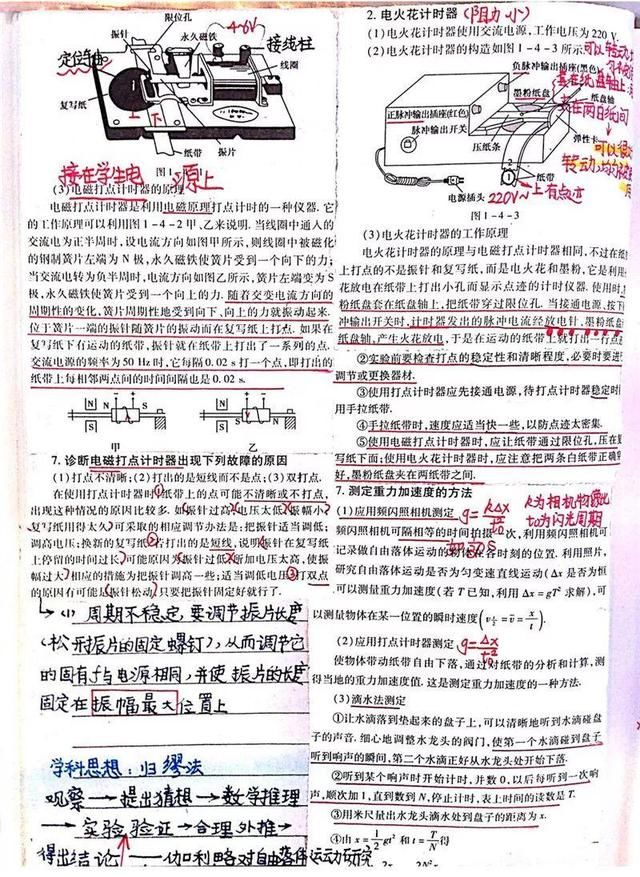 限位孔
振针
永久磁铁
4-6V
接线柱
定位轴
线圈
复写纸
上
下
振片
纸带
图1
接在学生电源上
(3)电磁打点计时器的原理
电磁打点计时器是利用电磁原理打点计时的一种仪器. 它
的工作原理可以利用图1-4-2甲、乙来说明. 当线圈中通入的
交流电为正半周时, 设电流方向如图甲所示, 则线圈中被磁化
的钢制簧片左端为N极, 永久磁铁使簧片受到一个向下的力;
当交流电转为负半周时, 电流方向如图乙所示, 簧片左端变为S
极, 永久磁铁使簧片受到一个向上的力. 随着交变电流方向的
周期性的变化, 簧片周期性地受到向下、向上的力就振动起来.
位于簧片一端的振针随簧片的振动而在复写纸上打点. 如果在
复写纸下有运动的纸带, 振针就在纸带上打出了一系列的点.
交流电源的频率为50 Hz时, 它每隔0.02 s打一个点, 即打出的
纸带上每相邻两点间的时间间隔也是0.02 s.
N
S
N
S
S
N
甲
乙
7. 诊断电磁打点计时器出现下列故障的原因
(1)打点不清晰;(2)打出的是短线而不是点;(3)双打点.
在使用打点计时器时①纸带上的点可能不清晰或不打点,
出现这种情况的原因比较多. 如(振针过高)(电压太低)(振幅小)
(复写纸用得太久)可采取的相应调节办法是: 把振针适当调低;
调高电压; 换新的复写纸②若打出的是短线, 说明(振针在复写纸
上停留的时间过长)可能原因为(振针过低)(所加电压太高, 使振
幅过大)相应的措施为把振针调高一些; 适当调低电压③打双点
的原因有可能是(振针松动)只要把振针固定好就行了.
(1) 周期不稳定, 要调节振片长度
(松开振片的固定螺钉), 从而调节它
的固有f与电源相同, 并使振片的长度
固定在振幅最大位置上
学科思想: 归缪法
观察→提出猜想→数学推理
→实验验证→合理外推→
得出结论——伽利略对自由落体运动研究
2. 电火花计时器 (阻力小)
(1)电火花计时器使用交流电源, 工作电压为220 V.
(2)电火花计时器的构造如图1-4-3所示
负脉冲输出插座(黑色)
墨粉纸盘
纸盘轴
正脉冲输出插座(红色)
脉冲输出开关
夹在两日纸间
弹性卡
压纸条
纸带
电源插头
220V~
上有点迹
图1-4-3
(3)电火花计时器的工作原理
电火花计时器的原理与电磁打点计时器相同, 不过在纸
上打点的不是振针和复写纸, 而是电火花和墨粉, 它是利用
花放电在纸带上打出小孔而显示点迹的计时仪器. 使用时,
粉纸盘套在纸盘轴上, 把纸带穿过限位孔. 当接通电源, 按下
冲输出开关时, 计时器发出的脉冲电流经放电针, 墨粉纸盘
纸盘轴, 产生火花放电, 于是在运动的纸带上就打出一行点
②实验前要检查打点的稳定性和清晰程度, 必要时要进
调节或更换器材.
③使用打点计时器应先接通电源, 待打点计时器稳定时
用手拉纸带.
④手拉纸带时, 速度应适当快一些, 以防点迹太密集.
⑤使用电磁打点计时器时, 应让纸带通过限位孔, 压在复
写纸下面; 使用电火花计时器时, 应注意把两条白纸带正确
好, 墨粉纸盘夹在两纸带之间.
7. 测定重力加速度的方法
k为相机物数比
t0为闪光周期
(1)应用频闪照相机测定
频闪照相机可隔相等的时间拍摄一次, 利用频闪照相机可
记录做自由落体运动的物体在各时刻的位置. 利用照片,
研究自由落体运动是否为匀变速直线运动(Δx是否为恒
可以测量重力加速度(若T已知, 利用Δx=gT²求解), 可
以测量物体在某一位置的瞬时速度(v t/2 = v̄ = x/t).
(2)应用打点计时器测定 g=Δx/t²
使物体带动纸带自由下落, 通过对纸带的分析和计算, 测
得当地的重力加速度值. 这是测定重力加速度的一种方法.
(3)滴水法测定
①让水滴落到垫起来的盘子上, 可以清晰地听到水滴碰盘
子的声音. 细心地调整水龙头的阀门, 使第一个水滴碰到盘子
听到响声的瞬间, 第二个水滴正好从水龙头处开始下落.
②听到某个响声时开始计时, 并数0, 以后每听到一次响
声, 顺次加1, 直到数到N, 停止计时, 表上时间的读数是T.
③用米尺量出水龙头滴水处到盘子的距离为x.
④由x=1/2 gt² 和 t=T/N得